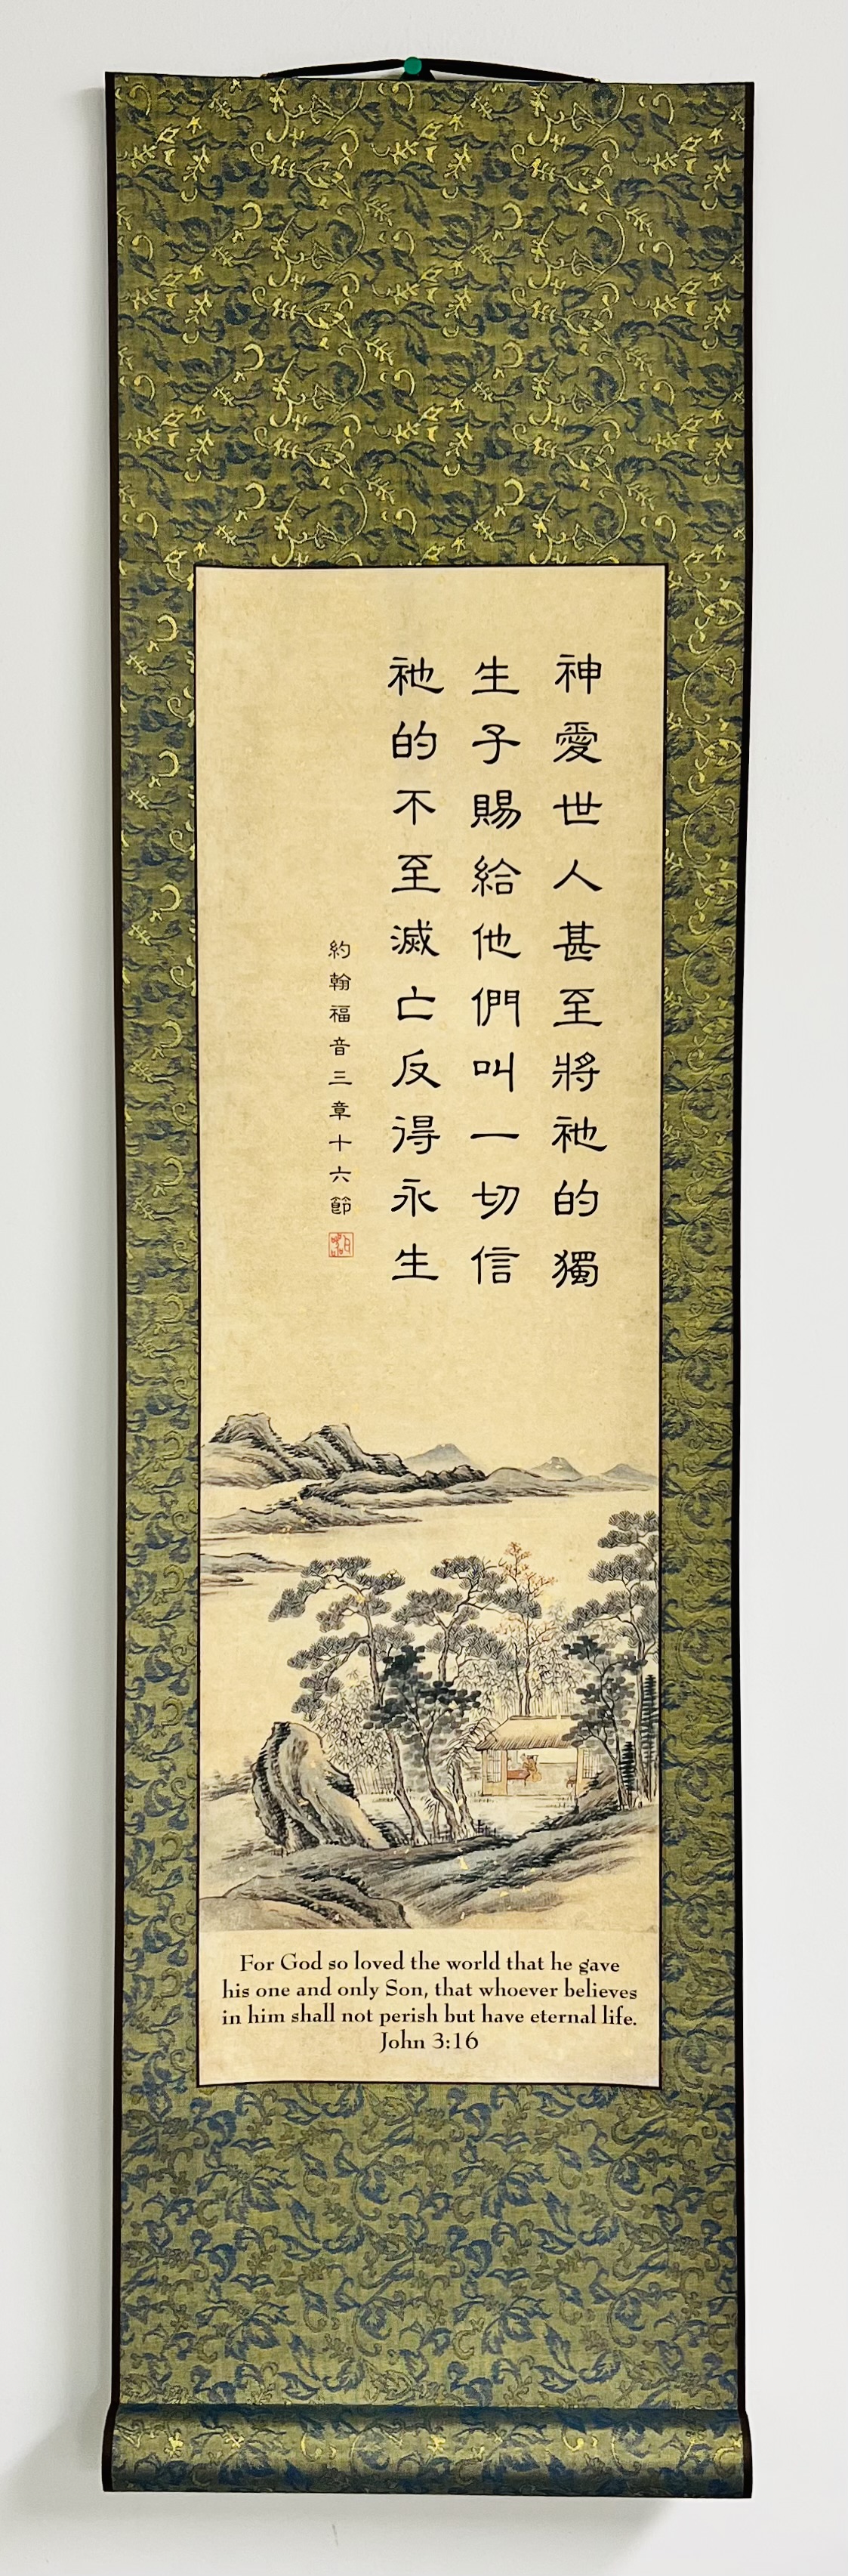 神愛世人甚至將祂的獨
生子賜給他們叫一切信
祂的不至滅亡反得永生
約翰福音三章十六節
For God so loved the world that he gave
his one and only Son, that whoever believes
in him shall not perish but have eternal life.
John 3:16